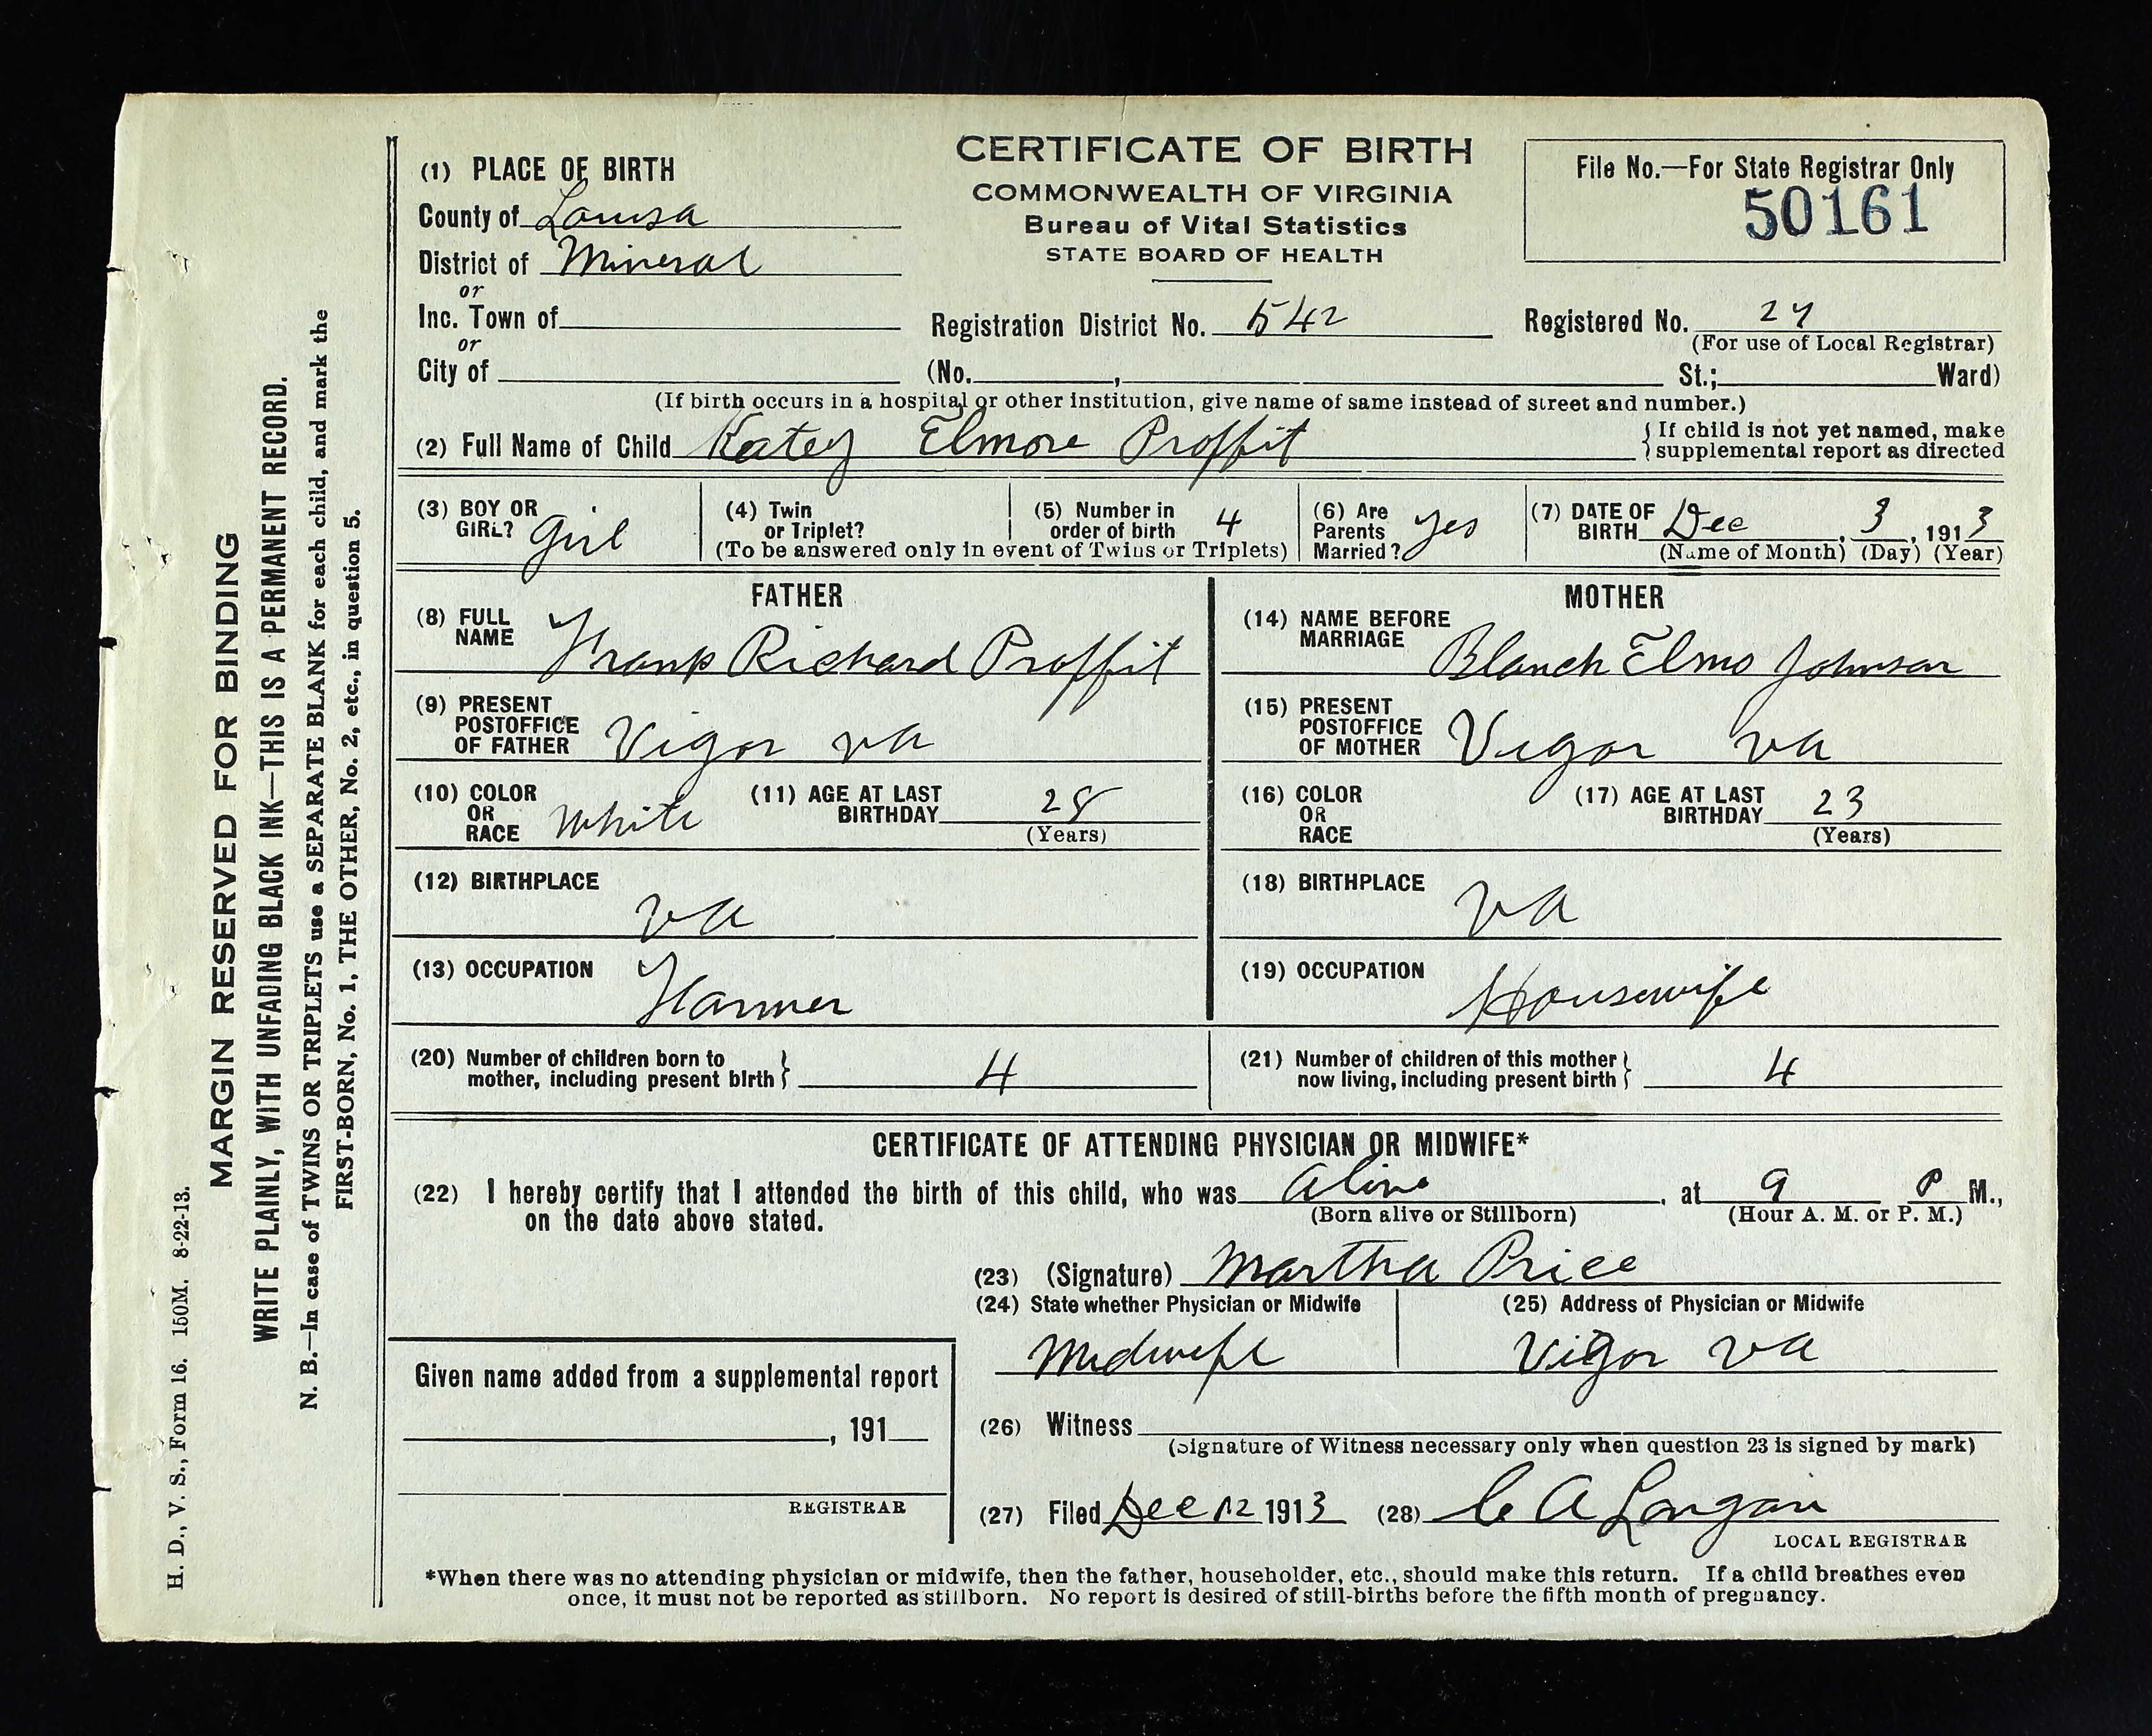 CERTIFICATE OF BIRTH
COMMONWEALTH OF VIRGINIA
Bureau of Vital Statistics
STATE BOARD OF HEALTH
File No.—For State Registrar Only
50161
(1) PLACE OF BIRTH
County of Louisa
District of Mineral
or
Inc. Town of
Registration District No. 542
Registered No.
(For use of Local Registrar)
or
City of (No. , St.; Ward)
(If birth occurs in a hospital or other institution, give name of same instead of street and number.)
(2) Full Name of Child Katey Elmore Proffit
{ If child is not yet named, make
supplemental report as directed
(3) BOY OR
GIRL? Girl
(4) Twin
or Triplet?
(5) Number in
order of birth 4
(To be answered only in event of Twins or Triplets)
(6) Are
Parents
Married? Yes
(7) DATE OF
BIRTH Dec , 3 , 1913
(Name of Month) (Day) (Year)
FATHER
(8) FULL
NAME Frank Richard Proffit
(9) PRESENT
POSTOFFICE
OF FATHER Vigor va
(10) COLOR
OR
RACE White
(11) AGE AT LAST
BIRTHDAY 28
(Years)
(12) BIRTHPLACE
va
(13) OCCUPATION
Farmer
MOTHER
(14) NAME BEFORE
MARRIAGE Blanch Elmo Johnson
(15) PRESENT
POSTOFFICE
OF MOTHER Vigor va
(16) COLOR
OR
RACE
(17) AGE AT LAST
BIRTHDAY 23
(Years)
(18) BIRTHPLACE
va
(19) OCCUPATION
Housewife
(20) Number of children born to
mother, including present birth } 4
(21) Number of children of this mother
now living, including present birth } 4
CERTIFICATE OF ATTENDING PHYSICIAN OR MIDWIFE*
(22) I hereby certify that I attended the birth of this child, who was alive , at 9 P M.,
(Born alive or Stillborn) (Hour A. M. or P. M.)
on the date above stated.
(23) (Signature) Martha Price
(24) State whether Physician or Midwife
Midwife
(25) Address of Physician or Midwife
Vigor va
(26) Witness
(Signature of Witness necessary only when question 23 is signed by mark)
(27) Filed Dec 12 1913 (28) C A Longan
LOCAL REGISTRAR
Given name added from a supplemental report
, 191
REGISTRAR
*When there was no attending physician or midwife, then the father, householder, etc., should make this return. If a child breathes even
once, it must not be reported as stillborn. No report is desired of still-births before the fifth month of pregnancy.
MARGIN RESERVED FOR BINDING
WRITE PLAINLY, WITH UNFADING BLACK INK—THIS IS A PERMANENT RECORD.
N. B.—In case of TWINS OR TRIPLETS use a SEPARATE BLANK for each child, and mark the
FIRST-BORN, No. 1, THE OTHER, No. 2, etc., in question 5.
H. D., V. S., Form 16. 150M. 8-22-13.